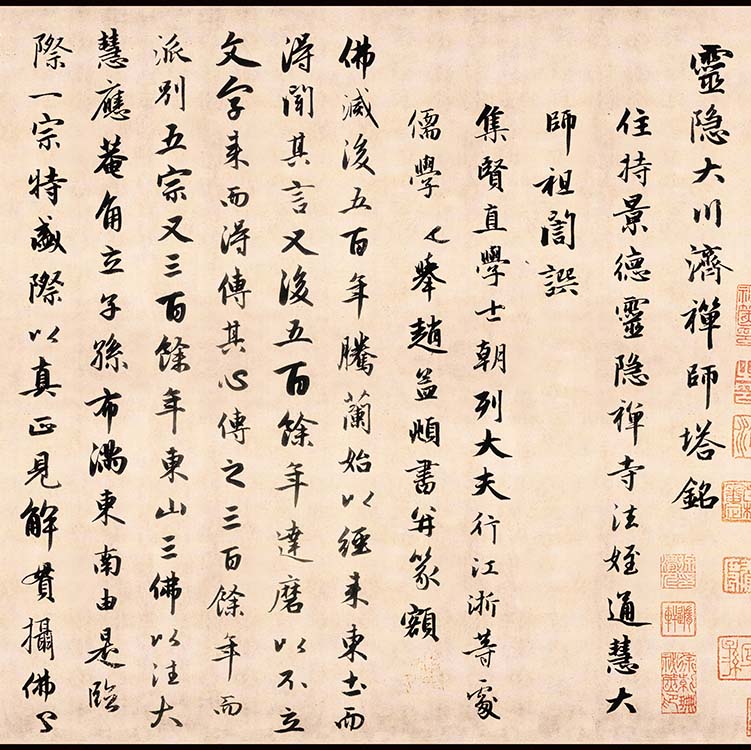 靈隐大川濟禪師塔銘
住持景德靈隐禅寺法姪通慧大
師祖誾譔
集賢直學士朝列大夫行江浙等處
儒學提舉趙孟頫書并篆額
佛滅後五百年騰蘭始以經来東土而
得聞其言又後五百餘年達磨以不立
文字来而得傳其心傳之三百餘年而
派別五宗又三百餘年東山三佛以法大
慧應菴角立子孫布満東南由是臨
際一宗特盛際以真正見解貫攝佛々